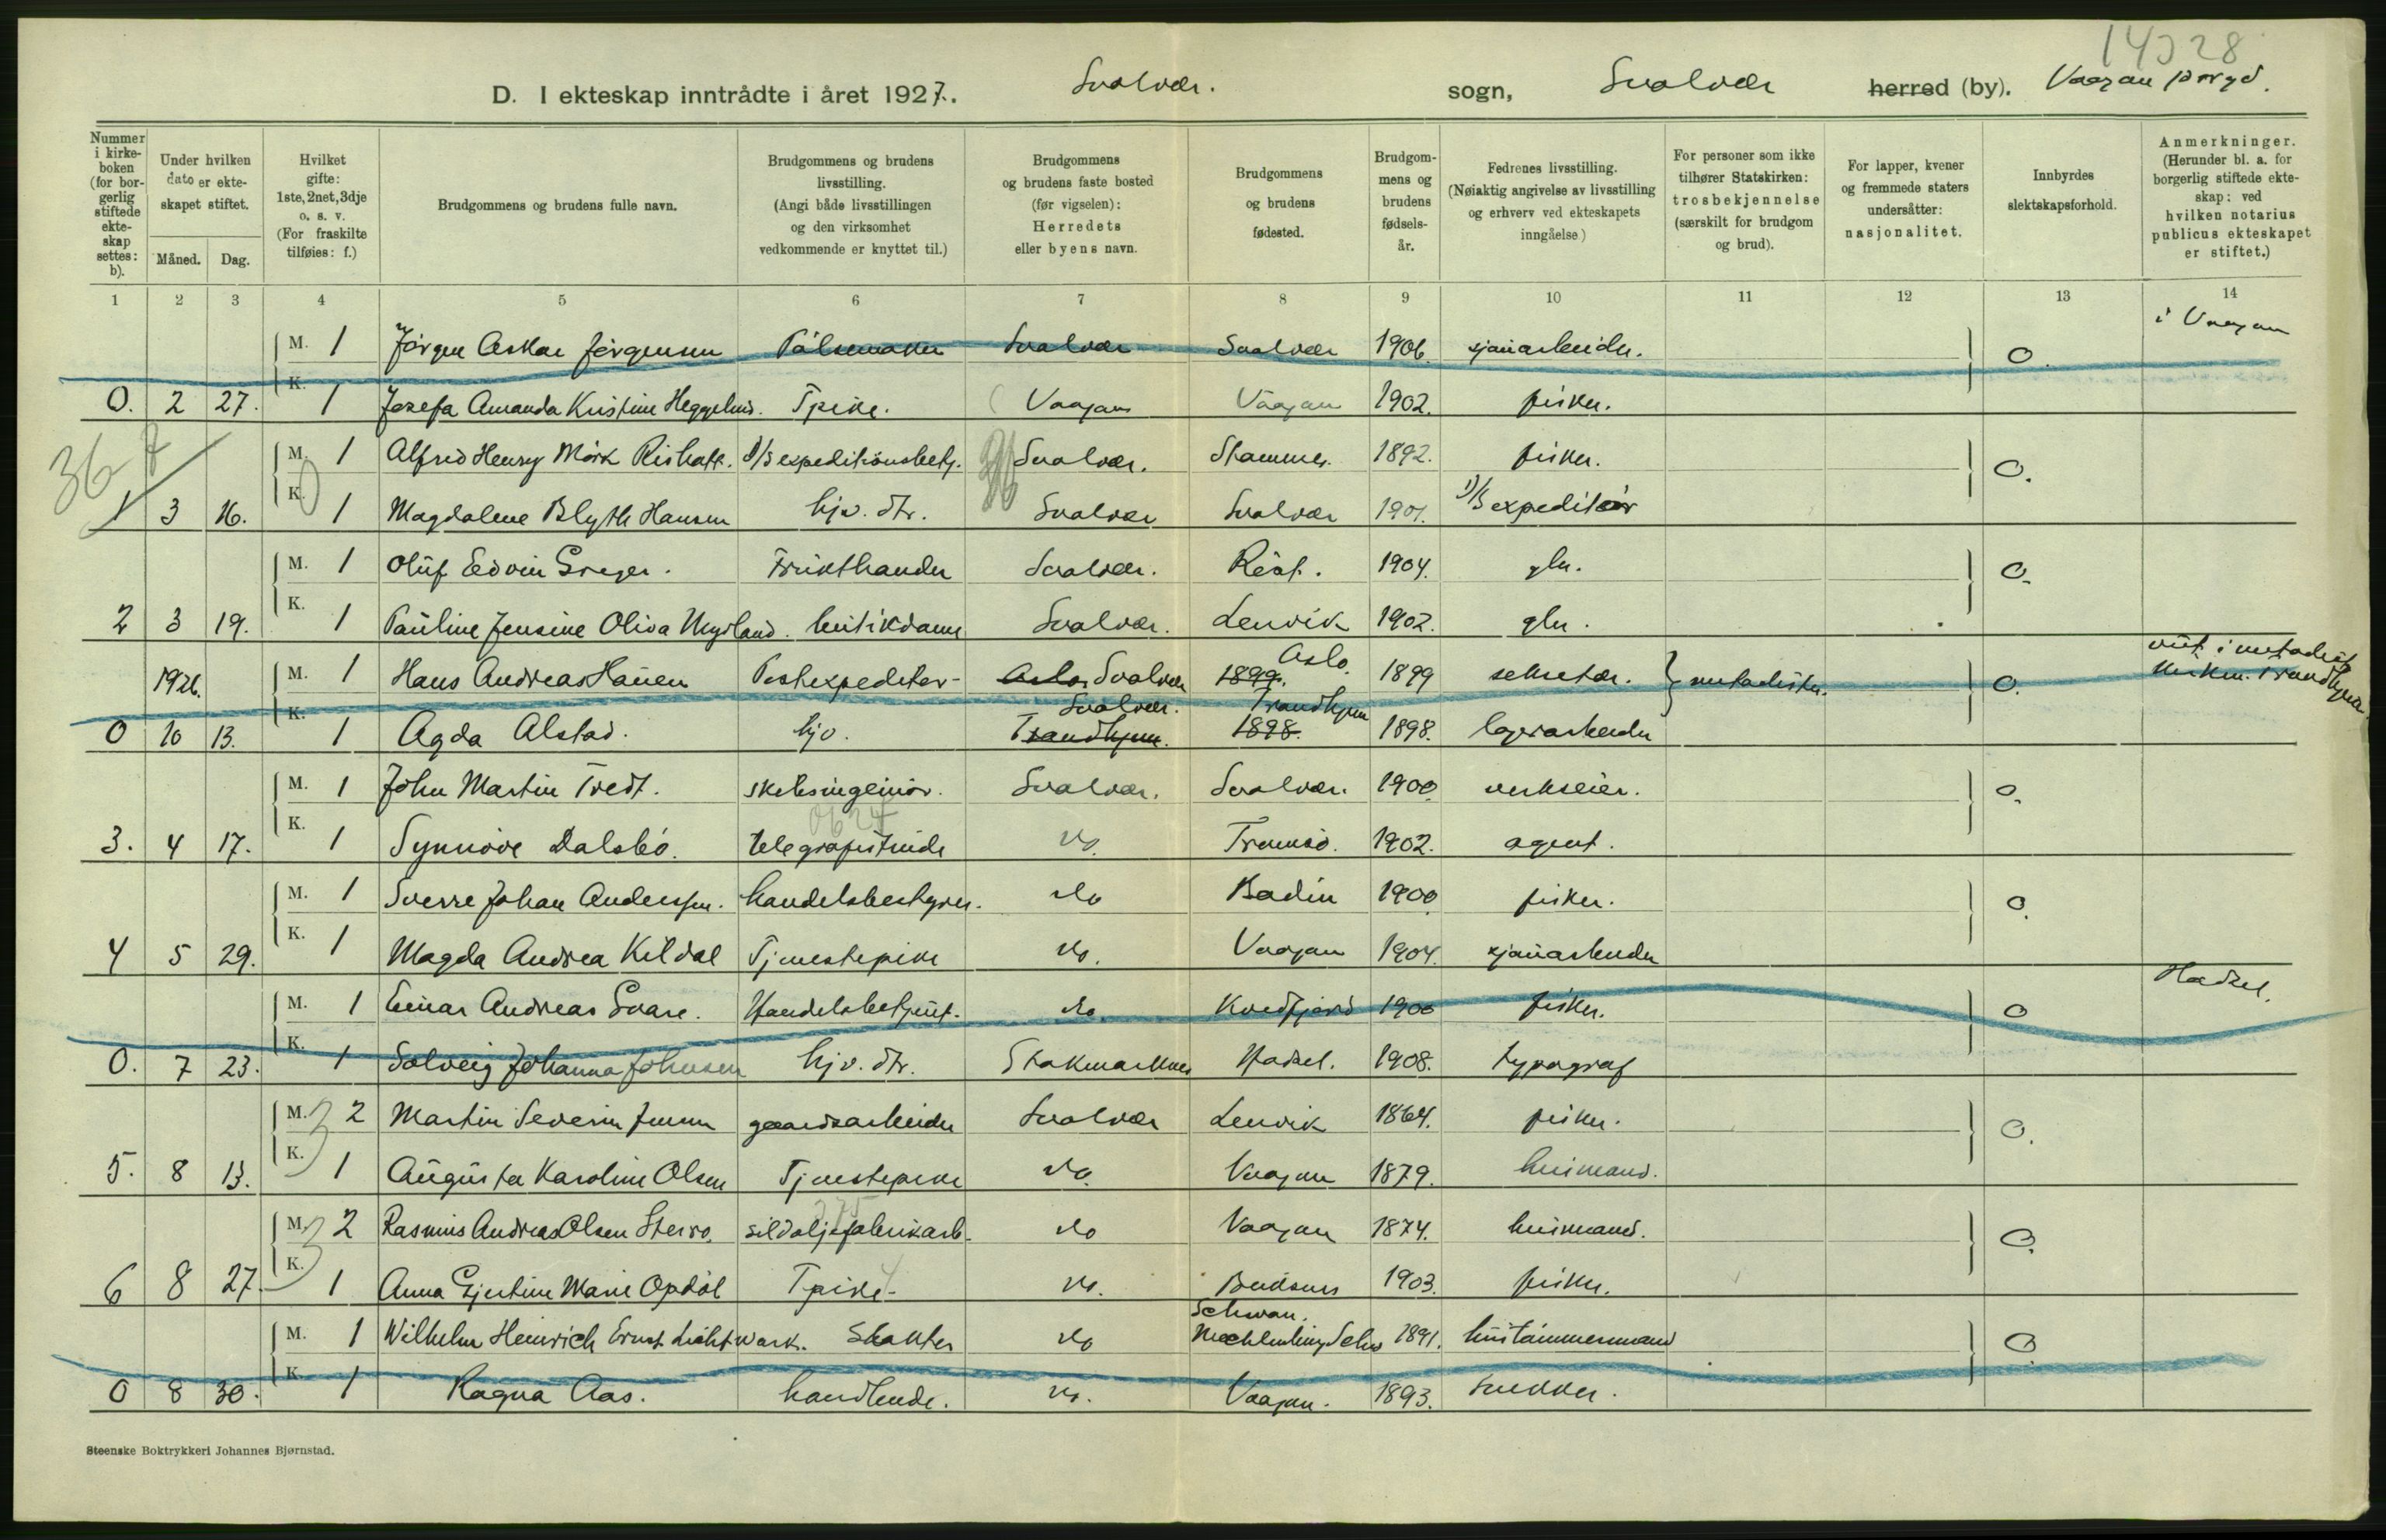 14328
D. I ekteskap inntrådte i året 1927. Svolvær. sogn, Svolvær herred (by). Vaagan prgd.
Nummer i kirkeboken (for borgerlig stiftede ekteskap settes: b).
Under hvilken dato er ekteskapet stiftet.
Måned. Dag.
Hvilket gifte: 1ste, 2net, 3dje o. s. v. (For fraskilte tilføies: f.)
Brudgommens og brudens fulle navn.
Brudgommens og brudens livsstilling. (Angi både livsstillingen og den virksomhet vedkommende er knyttet til.)
Brudgommens og brudens faste bosted (før vigselen): Herredets eller byens navn.
Brudgommens og brudens fødested.
Brudgommens og brudens fødselsår.
Fedrenes livsstilling. (Nøiaktig angivelse av livsstilling og erhverv ved ekteskapets inngåelse.)
For personer som ikke tilhører Statskirken: trosbekjennelse (særskilt for brudgom og brud).
For lapper, kvener og fremmede staters undersåtter: nasjonalitet.
Innbyrdes slektskapsforhold.
Anmerkninger. (Herunder bl. a. for borgerlig stiftede ekteskap: ved hvilken notarius publicus ekteskapet er stiftet.)
1 2 3 4 5 6 7 8 9 10 11 12 13 14
M. 1 Jörgen Oskar Jörgensen Pölsemaker Svolvær Svolvær 1906. sjauarbeider. 0. i Vaagan
0. 2 27. K. 1 Josefa Amanda Kristine Heggelund. Tpike. Vaagan Vaagan 1902. fisker.
36
M. 1 Alfred Henry Mörk Rishaff. D/S expeditionsbetj. Svolvær. Stamnes. 1892. fisker. 0.
1 3 16. K. 1 Magdalene Blyth Hansen hjv. dtr. Svolvær Svolvær 1901. D/S expeditör
M. 1 Oluf Edvin Greger. Frukthandler Svolvær. Röst. 1904. gbr. 0.
2 3 19. K. 1 Pauline Jensine Oliva Nygland. butikdame Svolvær. Lenvik 1902. gbr.
1926. M. 1 Hans Andreas Hauen Postexpeditør Oslo Svolvær 1899. Oslo. 1899 sekretær. metodister. 0. viet i metodist kirken. Trondhjem.
0 10 13. K. 1 Agda Alstad. hjv. Trondhjem. Svolvær. 1898. Trondhjem 1898. lagerarbeider
M. 1 John Martin Tvedt. skibsingeniör. Svolvær. Svolvær. 1900. verkseier. 0.
3. 4 17. K. 1 Synnöve Dalsbö. telegrafistinde do. Tromsö. 1902. agent.
M. 1 Sverre Johan Anderssen. handelsbestyrer. do Bodin 1900 fisker. 0.
4 5 29. K. 1 Magda Andrea Kildal Tjenestepike do. Vaagan 1904. sjauarbeider
M. 1 Einar Andreas Svare. Handelsbetjent. do. Kvedfjord 1900 fisker. 0 Hadsel.
0. 7 23. K. 1 Solveig Johanna Johnsen hjv. dtr. Stokmarknes Hadsel. 1908. typograf
M. 2 Martin Severin Jensen gaardsarbeider Svolvær Lenvik 1864. fisker. 0.
5. 8 13. K. 1 Augusta Karoline Olsen Tjenestepike do. Vaagan 1879. husmand.
M. 2 Rasmus Andreas Olsen sildoljefabrikarb. do Vaagan 1874. husmand. 0.
6 8 27. K. 1 Anna Gjertine Marie Opdöl Tpike do. 1903. fisker.
M. 1 Wilhelm Heinrich Ernst Lichtwark. Slakter do Schwan. Mechlenburg Schw 1891. hustömmermand 0.
0 8 30. K. 1 Ragna Aas. handlende. do. Vaagan. 1893. Snekker.
Steenske Boktrykkeri Johannes Bjørnstad.